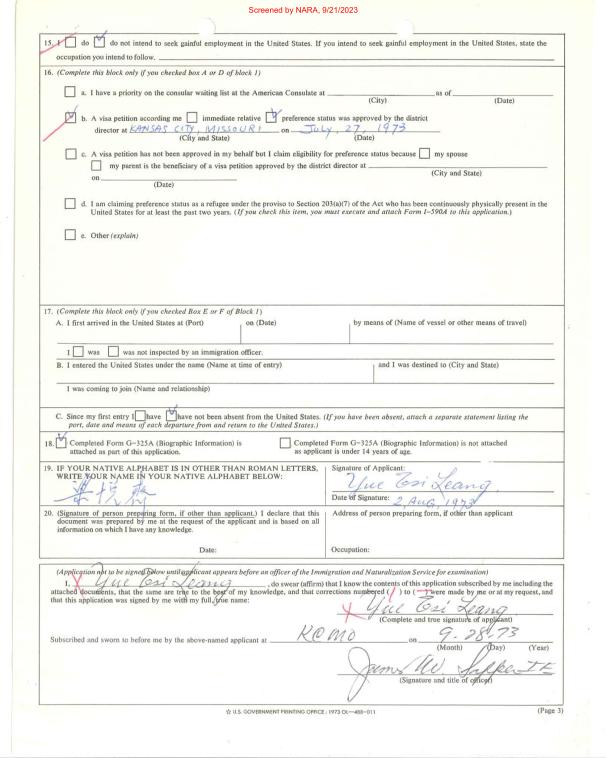 Screened by NARA, 9/21/2023
15. I do do not intend to seek gainful employment in the United States. If you intend to seek gainful employment in the United States, state the
occupation you intend to follow.
16. (Complete this block only if you checked box A or D of block 1)
a. I have a priority on the consular waiting list at the American Consulate at as of
(City) (Date)
b. A visa petition according me immediate relative preference status was approved by the district
director at KANSAS CITY, MISSOURI on July, 27, 1973
(City and State) (Date)
c. A visa petition has not been approved in my behalf but I claim eligibility for preference status because my spouse
my parent is the beneficiary of a visa petition approved by the district director at
(City and State)
on
(Date)
d. I am claiming preference status as a refugee under the proviso to Section 203(a)(7) of the Act who has been continuously physically present in the
United States for at least the past two years. (If you check this item, you must execute and attach Form I-590A to this application.)
e. Other (explain)
17. (Complete this block only if you checked Box E or F of Block 1)
A. I first arrived in the United States at (Port) on (Date) by means of (Name of vessel or other means of travel)
I was was not inspected by an immigration officer.
B. I entered the United States under the name (Name at time of entry) and I was destined to (City and State)
I was coming to join (Name and relationship)
C. Since my first entry I have have not been absent from the United States. (If you have been absent, attach a separate statement listing the
port, date and means of each departure from and return to the United States.)
18. Completed Form G-325A (Biographic Information) is Completed Form G-325A (Biographic Information) is not attached
attached as part of this application. as applicant is under 14 years of age.
19. IF YOUR NATIVE ALPHABET IS IN OTHER THAN ROMAN LETTERS,
WRITE YOUR NAME IN YOUR NATIVE ALPHABET BELOW:
梁悦
Signature of Applicant:
Yue Tsi Leang
Date of Signature: 2 Aug, 1973
20. (Signature of person preparing form, if other than applicant.) I declare that this
document was prepared by me at the request of the applicant and is based on all
information on which I have any knowledge.
Date:
Address of person preparing form, if other than applicant
Occupation:
(Application not to be signed below until applicant appears before an officer of the Immigration and Naturalization Service for examination)
I, Yue Tsi Leang, do swear (affirm) that I know the contents of this application subscribed by me including the
attached documents, that the same are true to the best of my knowledge, and that corrections numbered ( ) to ( ) were made by me or at my request, and
that this application was signed by me with my full, true name:
Yue Tsi Leang
(Complete and true signature of applicant)
Subscribed and sworn to before me by the above-named applicant at KCMO on 9-28-73
(Month) (Day) (Year)
James W.
(Signature and title of officer)
☆ U.S. GOVERNMENT PRINTING OFFICE: 1973 OL—488-011 (Page 3)